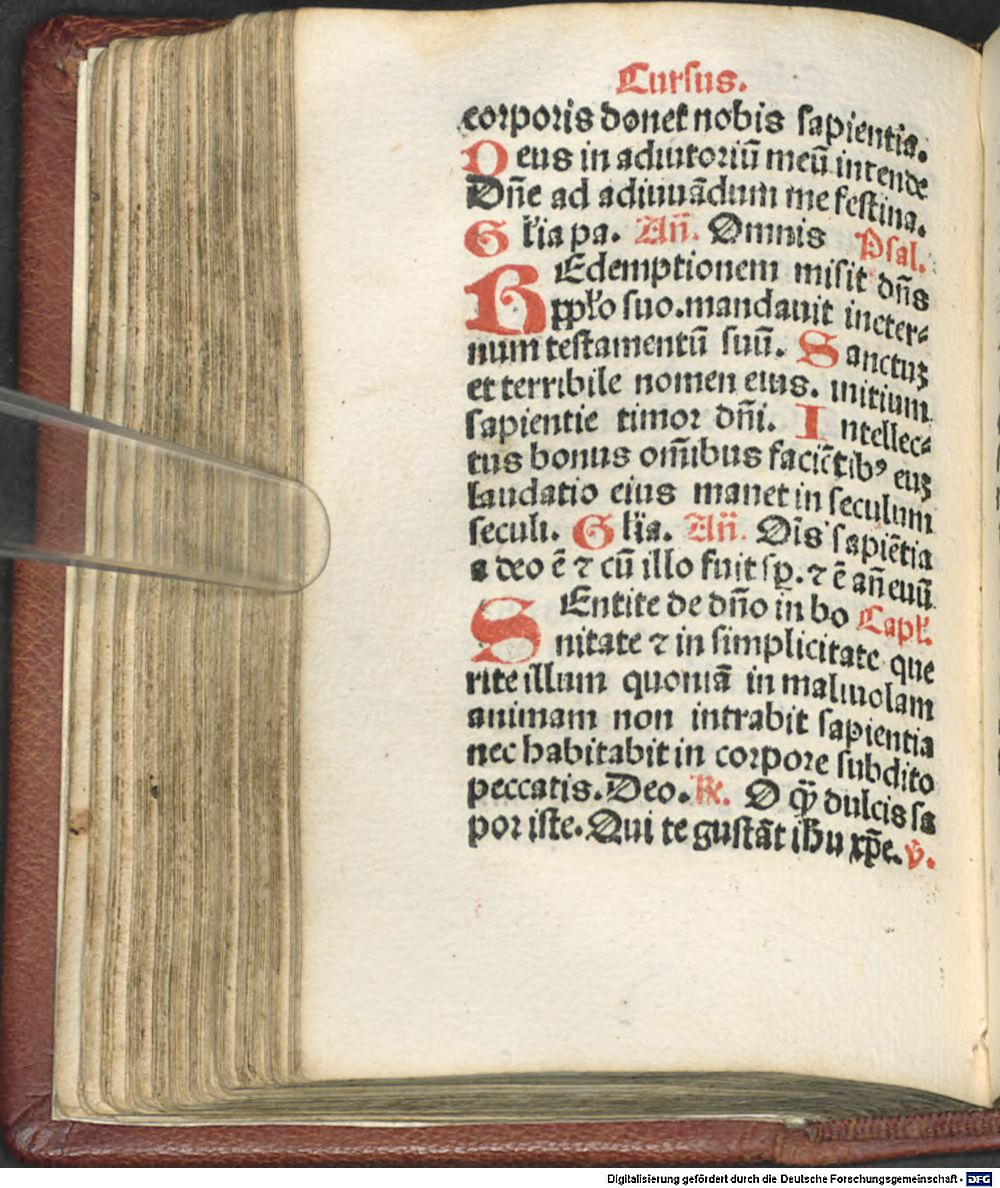 Cursus.
corporis donet nobis sapientia.
Deus in adiutoriū meū intende
Dn̄e ad adiuuādum me festina.
Gl'ia pa. An̄. Omnis Psal.
REdemptionem misit dn̄s
ppl'o suo. mandauit in eter⸗
num testamentū suū. Sanctuꝫ
et terribile nomen eius. initium
sapientie timor dn̄i. Intellec⸗
tus bonus om̄ibus faciētibꝰ euꝫ
laudatio eius manet in seculum
seculi. Gl'ia. An̄. Oīs sapiētia
a deo ē ⁊ cū illo fuit sp̱. ⁊ ē an̄ euū
SEntite de dn̄o in bo Capl'.
nitate ⁊ in simplicitate que
rite illum quoniā in maliuolam
animam non intrabit sapientia
nec habitabit in corpore subdito
peccatis. Deo. ℟. O qȳ dulcis sa
por iste. Qui te gustāt ih̄u xp̄e. ℣.
Digitalisierung gefördert durch die Deutsche Forschungsgemeinschaft - DFG